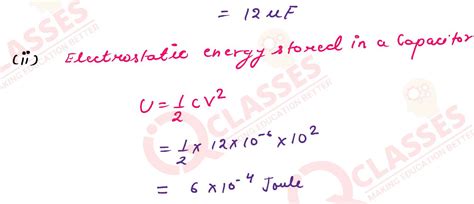 = 12 µF
(ii) Electrostatic energy stored in a Capacitor
U = 1/2 CV²
= 1/2 × 12×10⁻⁶ × 10²
= 6 × 10⁻⁴ Joule
CLASSES
MAKING EDUCATION BETTER